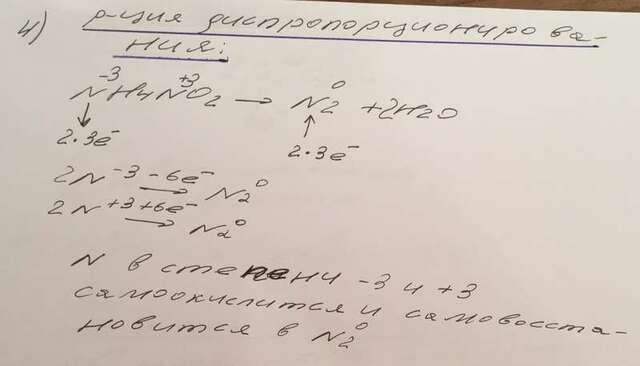 4) р-ция диспропорционирова-
ния:
-3 +3 0
NH4NO2 → N2 + 2H2O
↓ ↑
2·3e⁻ 2·3e⁻
2N⁻³ - 6e⁻ → N2⁰
2N⁺³ + 6e⁻ → N2⁰
N в степени -3 и +3
самоокислится и самовосста-
новится в N2⁰